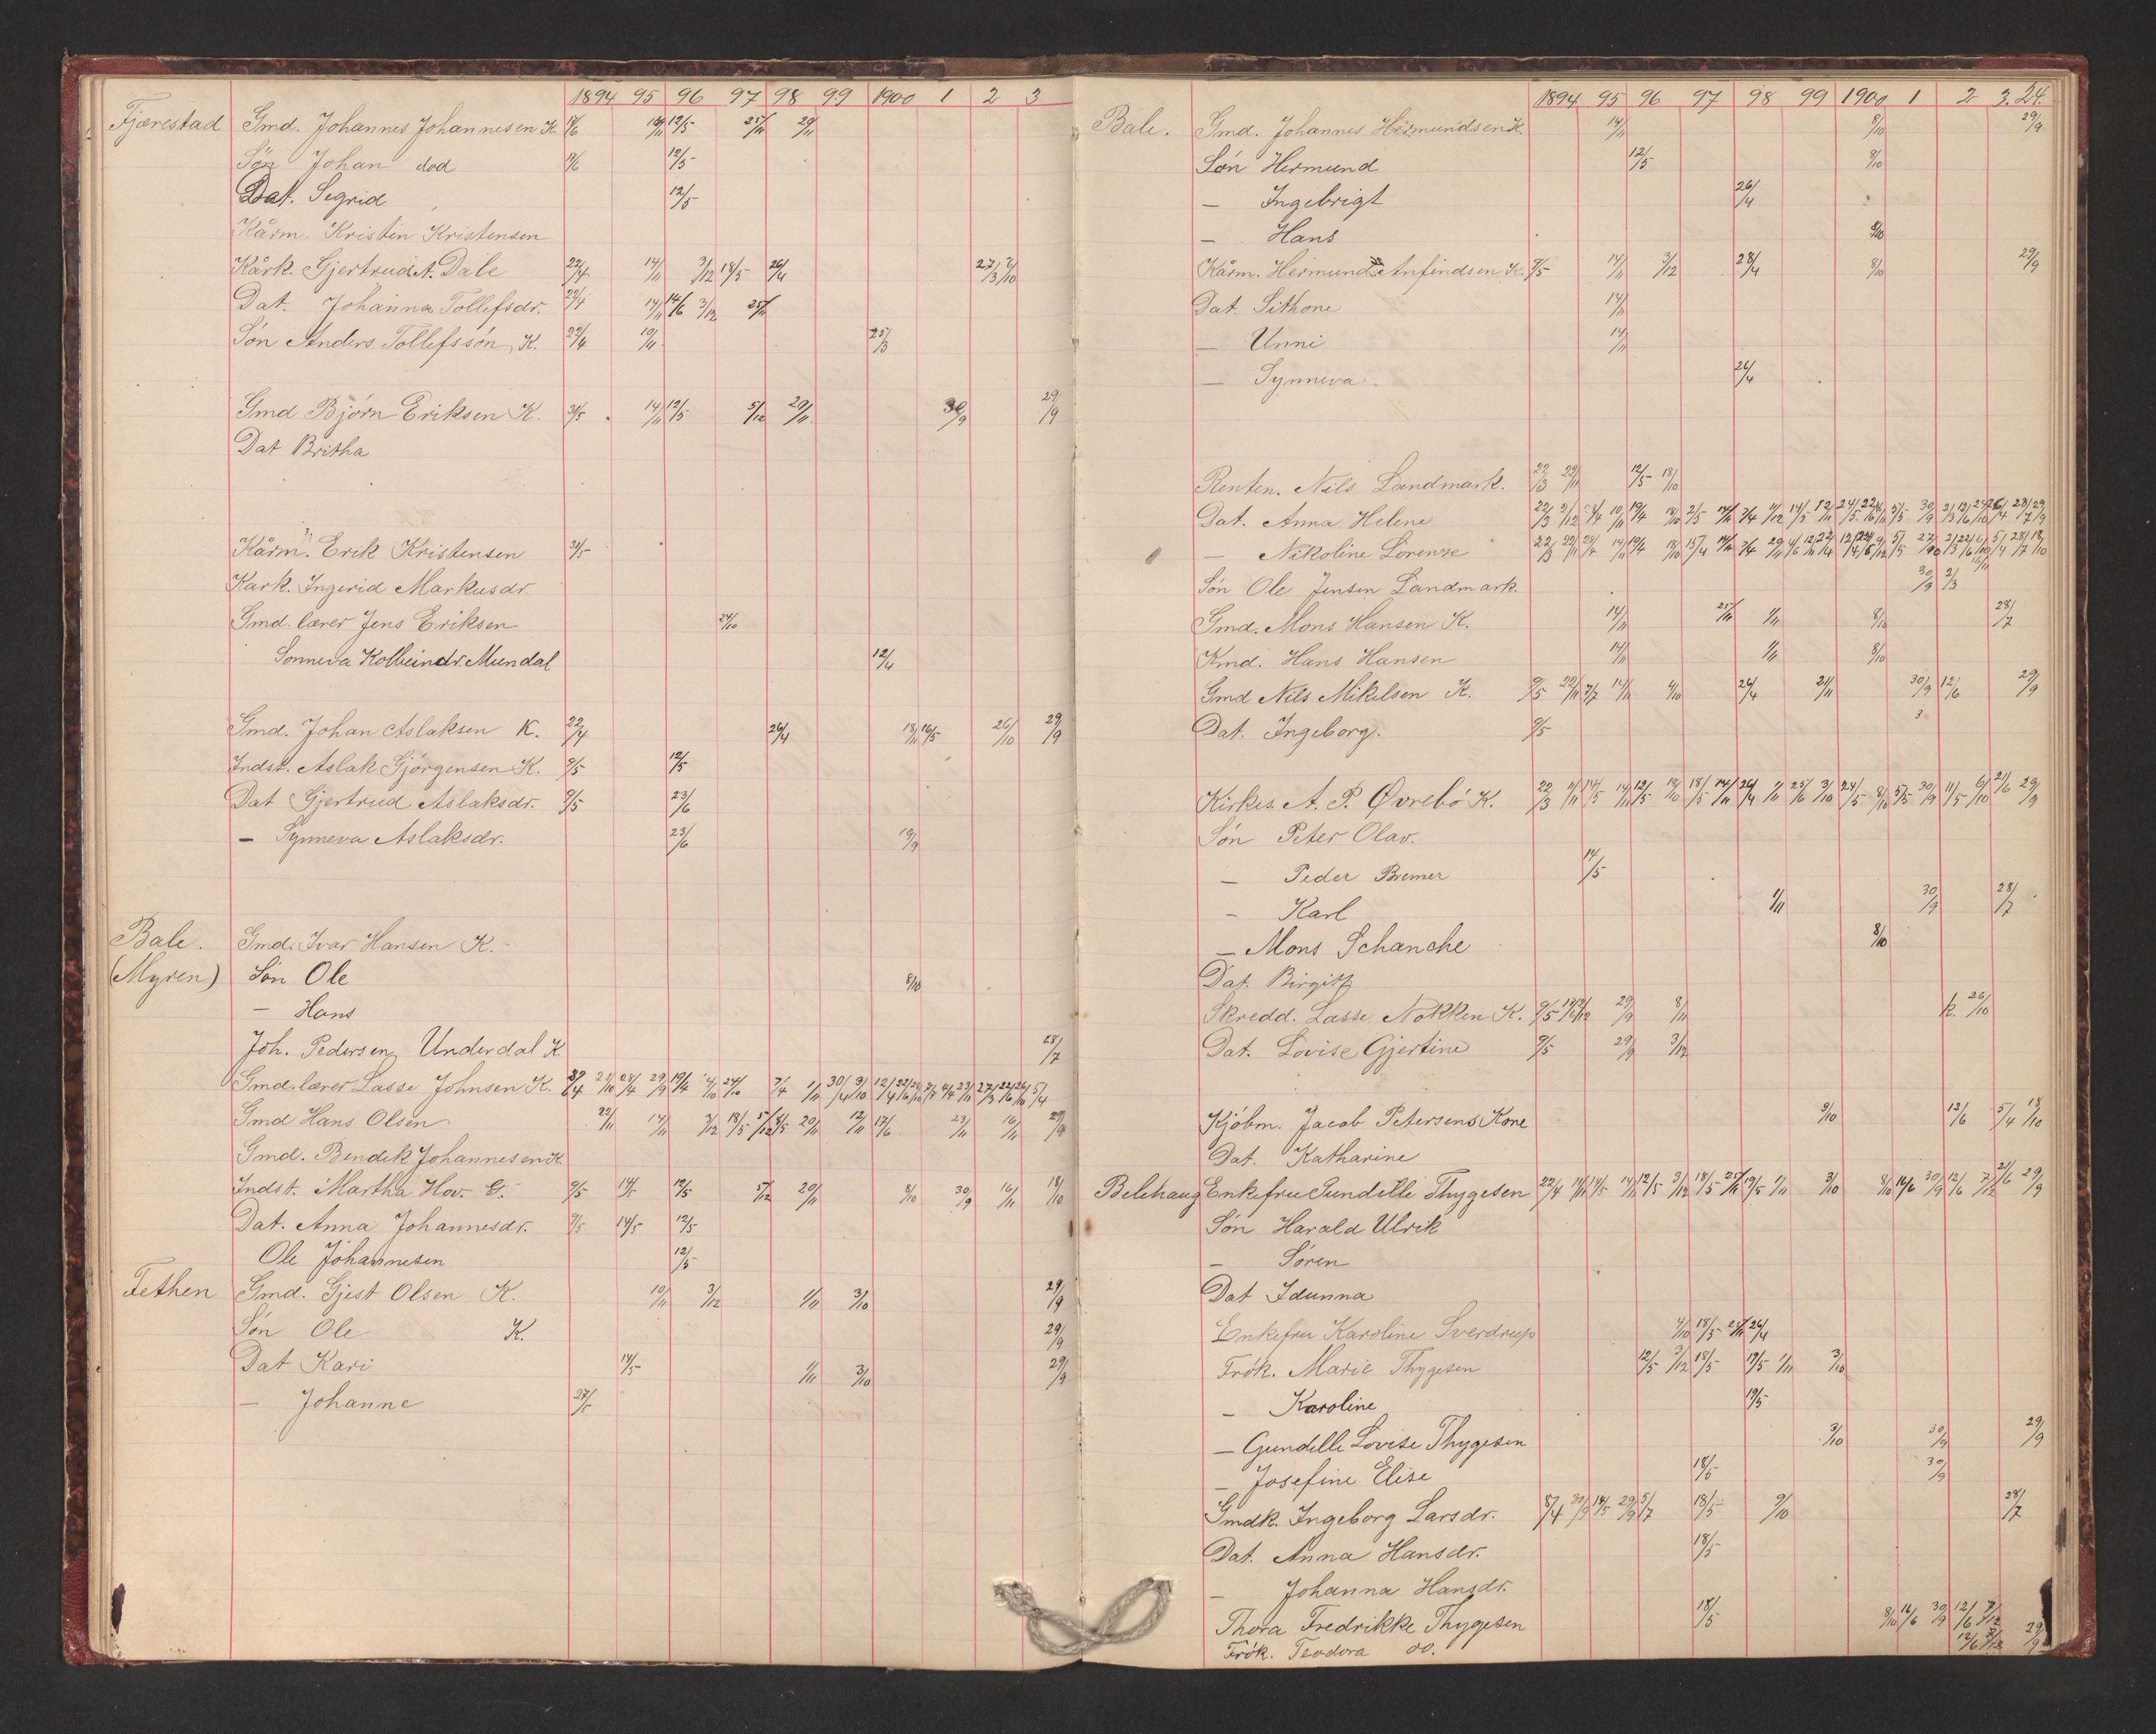 1894 95 96 97 98 99 1900 1 2 3
Fjærestad Gmd. Johannes Johannesen K. 12/5 25/11 29/11
Sön Johan död 12/5
Dat. Sigrid 12/5
Kårm. Kristen Kristensen
Kårk. Gjertrud A. Dale 22/4 14/11 3/12 18/5 26/4 27/3
Dat. Johanna Tollefsdr. 22/4 14/11 14/6 3/12 25/11
Són Anders Tollefssón, K. 22/4 10/11 25/3
Gmd Bjórn Eriksen K. 31/5 14/11 12/5 5/12 29/11 30/9 29/9
Dat Britha
Kårm. Erik Kristensen 31/5
Kark. Ingerid Markusdr.
Gmd. lærer Jens Eriksen 24/10
Sonneva Kolbeindr. Mundal 12/4
Gmd. Johan Aslaksen K. 22/4 26/4 18/11 16/5 26/10 29/9
Indst. Aslak Gjórgensen K. 9/5 12/5
Dat Gjertrud Aslaksdr. 9/5 23/6
— Synneva Aslaksdr. 23/6 19/9
Bale. Gmd. Ivar Hansen K.
(Myren) Són Ole 8/10
— Hans
Joh. Pedersen Underdal K. 28/7
Gmd. lærer Lasse Johnsen K. 21/10 28/4 29/9 19/4 4/10 24/10 7/4 1/11 30/4 3/10 12/4 22/6
Gmd Hans Olsen 22/11 14/11 3/12 18/5 5/12 20/11 12/11 17/6 23/11 16/11 29/9
Gmd. Bendik Johannesen K.
Indst. Martha Hov. E. 9/5 14/5 12/5 5/12 20/11 8/10 30/9 16/11 18/10
Dat. Anna Johannesdr. 9/5 14/5 12/5
Ole Johannesen 12/5
Tethen Gmd. Gjest Olsen K. 10/11 3/12 1/11 3/10 29/9
Són Ole K. 29/9
Dat Kari 14/5 1/11 3/10 29/9
— Johanne 27/5
1894 95 96 97 98 99 1900 1 2 3. 24.
Bale. Gmd. Johannes Hermundsen K. 14/11 8/10 29/9
Són Hermund 12/5 8/10
— Ingebrigt 26/4
— Hans 8/10
Kårm. Hermund Anfindsen K. 9/5 14/11 3/12 28/4 8/10 29/9
Dat. Sithone 14/11
— Unni 14/11
— Synneva. 26/4
Renten. Nils Landmark. 22/3 22/11 12/5 18/10
Dat. Anna Helene 22/3 2/12 10/11 19/4 18/10 2/5 14/11 14/5 12/11 24/5 5/5 30/9 28/7 29/9
— Nikoline Lorenze 22/3 22/11 14/11 19/4 18/10 15/4 14/11 5/5 27/10 5/4 28/7 18/10
Són Ole Jensen Landmark. 30/9 2/3
Gmd. Mons Hansen K. 14/11 25/11 1/11 8/10 28/7
Kmd. Hans Hansen 14/11 1/11 8/10
Gmd Nils Mikelsen K. 9/5 22/11 7/7 14/11 4/10 26/4 21/11 30/9 12/6 29/9
Dat. Ingeborg. 9/5 3
Kirkes. A. P. Øvrebó K. 22/3 11/11 14/5 14/11 12/5 18/10 18/5 14/11 26/4 1/11 25/6 3/10 24/5 8/10 5/5 30/9 11/5 6/10 21/6 29/9
Són Peter Olav.
— Peder Bremer 14/5
— Karl 1/11 30/9 28/7
— Mons Schanche 8/10
Dat. Birgit
Skredd. Lasse Nokken K. 9/5 29/9 8/11 k. 26/10
Dat. Lovise Gjertine 9/5 29/9 3/12
Kjóbm. Jacob Petersens Kone 9/10 12/6 5/4 18/10
Dat. Katharine
Belehaug Enkefru Gundelle Thygesen 22/4 11/11 14/5 14/11 12/5 3/12 18/5 25/11 19/5 1/11 3/10 8/10 16/6 30/9 12/6 7/12 21/6 29/9
Són Harald Ulrik
— Sören
Dat Idunna
Enkefru Karoline Sverdrup 4/10 18/5 25/11 26/4
Frók. Marie Thygesen 12/5 3/12 18/5 19/5 1/11 3/10
— Karoline 19/5
— Gundelle Lovise Thygesen 3/10 30/9 29/9
— Josefine Elise 18/5 30/9
Gmdk. Ingeborg Larsdr. 8/4 30/9 14/5 29/9 5/7 18/5 9/10 28/7
Dat. Anna Hansdr. 18/5
— Johanna Hansdr.
Thora Fredrikke Thygesen 18/5 8/10 16/6 30/9 12/6 7/12
Frók. Teodora do. 12/6 7/12 29/9